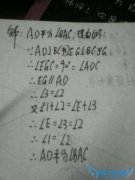 解: AD平分∠BAC, 理由如下:
∵AD⊥BC于D, EG⊥BC于G
∴∠EGC=90°=∠ADC
∴EG∥AD
∴∠3=∠2
又∠1+∠2=∠E+∠3
∴∠E=∠3=∠2
∴∠1=∠2
∴AD平分∠BAC